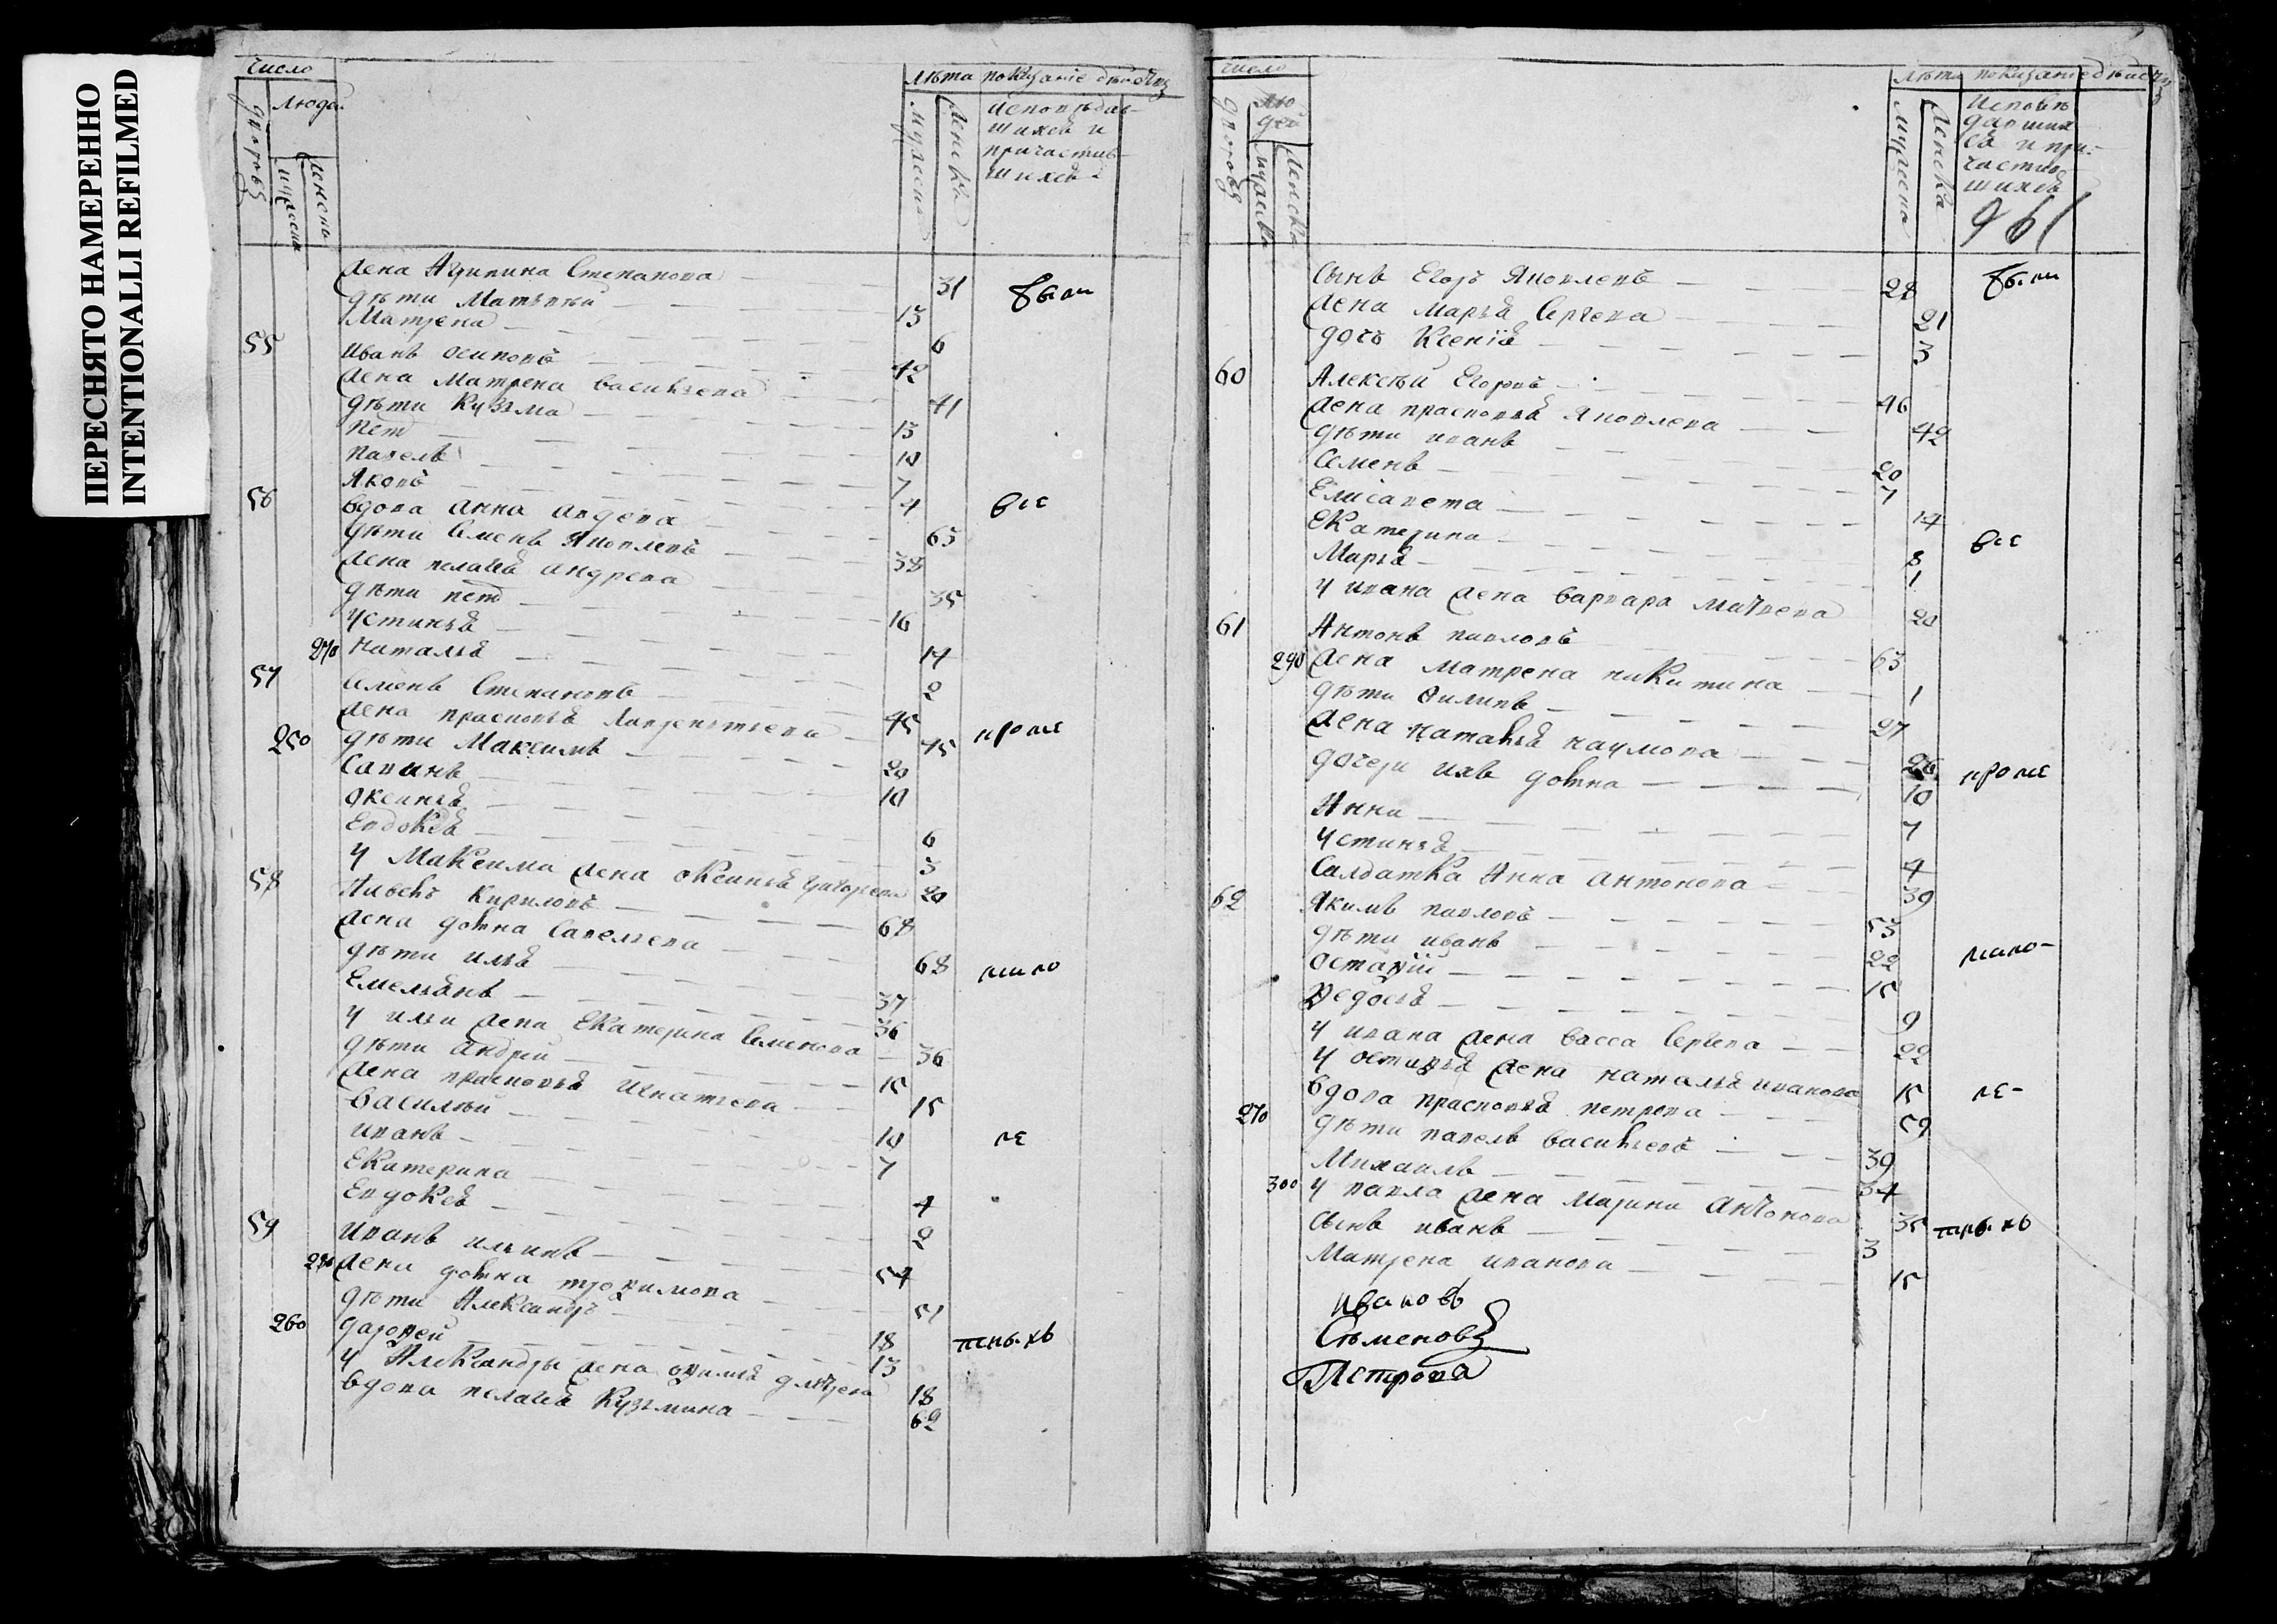 ПЕРЕСНЯТО НАМЕРЕННО
INTENTIONALLI REFILMED
число
люде
дворовъ
лѣта
показаніе дѣйств
мужеска
женска
исповѣдав-
шихся и
причастив-
шихся
жена Агрипина Степанова 31 были
дѣти Матвѣй 13
Матрена 6
55 иванъ осиповъ 42
жена Матрена васильева 41
дѣти Кузьма 13
пет 10
павелъ 7
яковъ 4
56 вдова анна авдева 63 все
дѣти Семенъ яковлевъ 38
жена пелагея андрева 35
дѣти пет 16
устинья 14
270 наталья 2
57 Степановъ 45
жена прасковья лаврентьева 45 кроме
250 дѣти Максимъ 20
Савинъ 10
оксинья 6
Евдокея 3
у Максима жена оксинья григорева 20
58 Кириловъ 68
жена домна Савельева 68 мало
дѣти илья 37
Емельянъ 36
у ильи жена Екатерина Семенова 36
дѣти андрей 15
жена прасковья игнатьева 15
василѣй 10 ле
иванъ 7
Екатерина 4
Евдокея 2
59 иванъ ильинъ 54
280 жена домна трофимова 51
дѣти Александръ 18
260 дарофей 13 тныхъ
у Александры жена 18
вдова пелагея Кузьмина 62
число
лю
дей
дворовъ
мужска
женска
лѣта
показание дѣйств
мужеска
женска
исповѣ
давших
ся и при-
частив
шихся
961
Сынъ Егоръ яковлевъ 28 были
жена марья Сергева 21
дочь Ксенія 3
60 Алексѣй Егоровъ 46
жена прасковья яковлева 42
дѣти иванъ 20
Семенъ 7
Елисавета 14
Екатерина 8 все
Марья 1
у ивана жена варвара матвева 20
61 Антонъ павловъ 63
290 жена матрена никитина 1
дѣти Филипъ 27
жена наталья наумова 26
дочери ихъ домна 10 кроме
Анна 7
устинья 4
Салдатка Анна антонова 39
62 якимъ павловъ 53
дѣти иванъ 22 мало-
остафій 15
Федосья 9
у ивана жена васса Сергева 22
у остафья жена наталья иванова 15 ле-
вдова прасковья петрова 59
270 дѣти павелъ васильевъ 39
Михаилъ 34
300 у павла жена марина антонова 35 тныхъ
сынъ иванъ 3
Матрена иванова 15
ивановъ
Съменовъ
Петрова